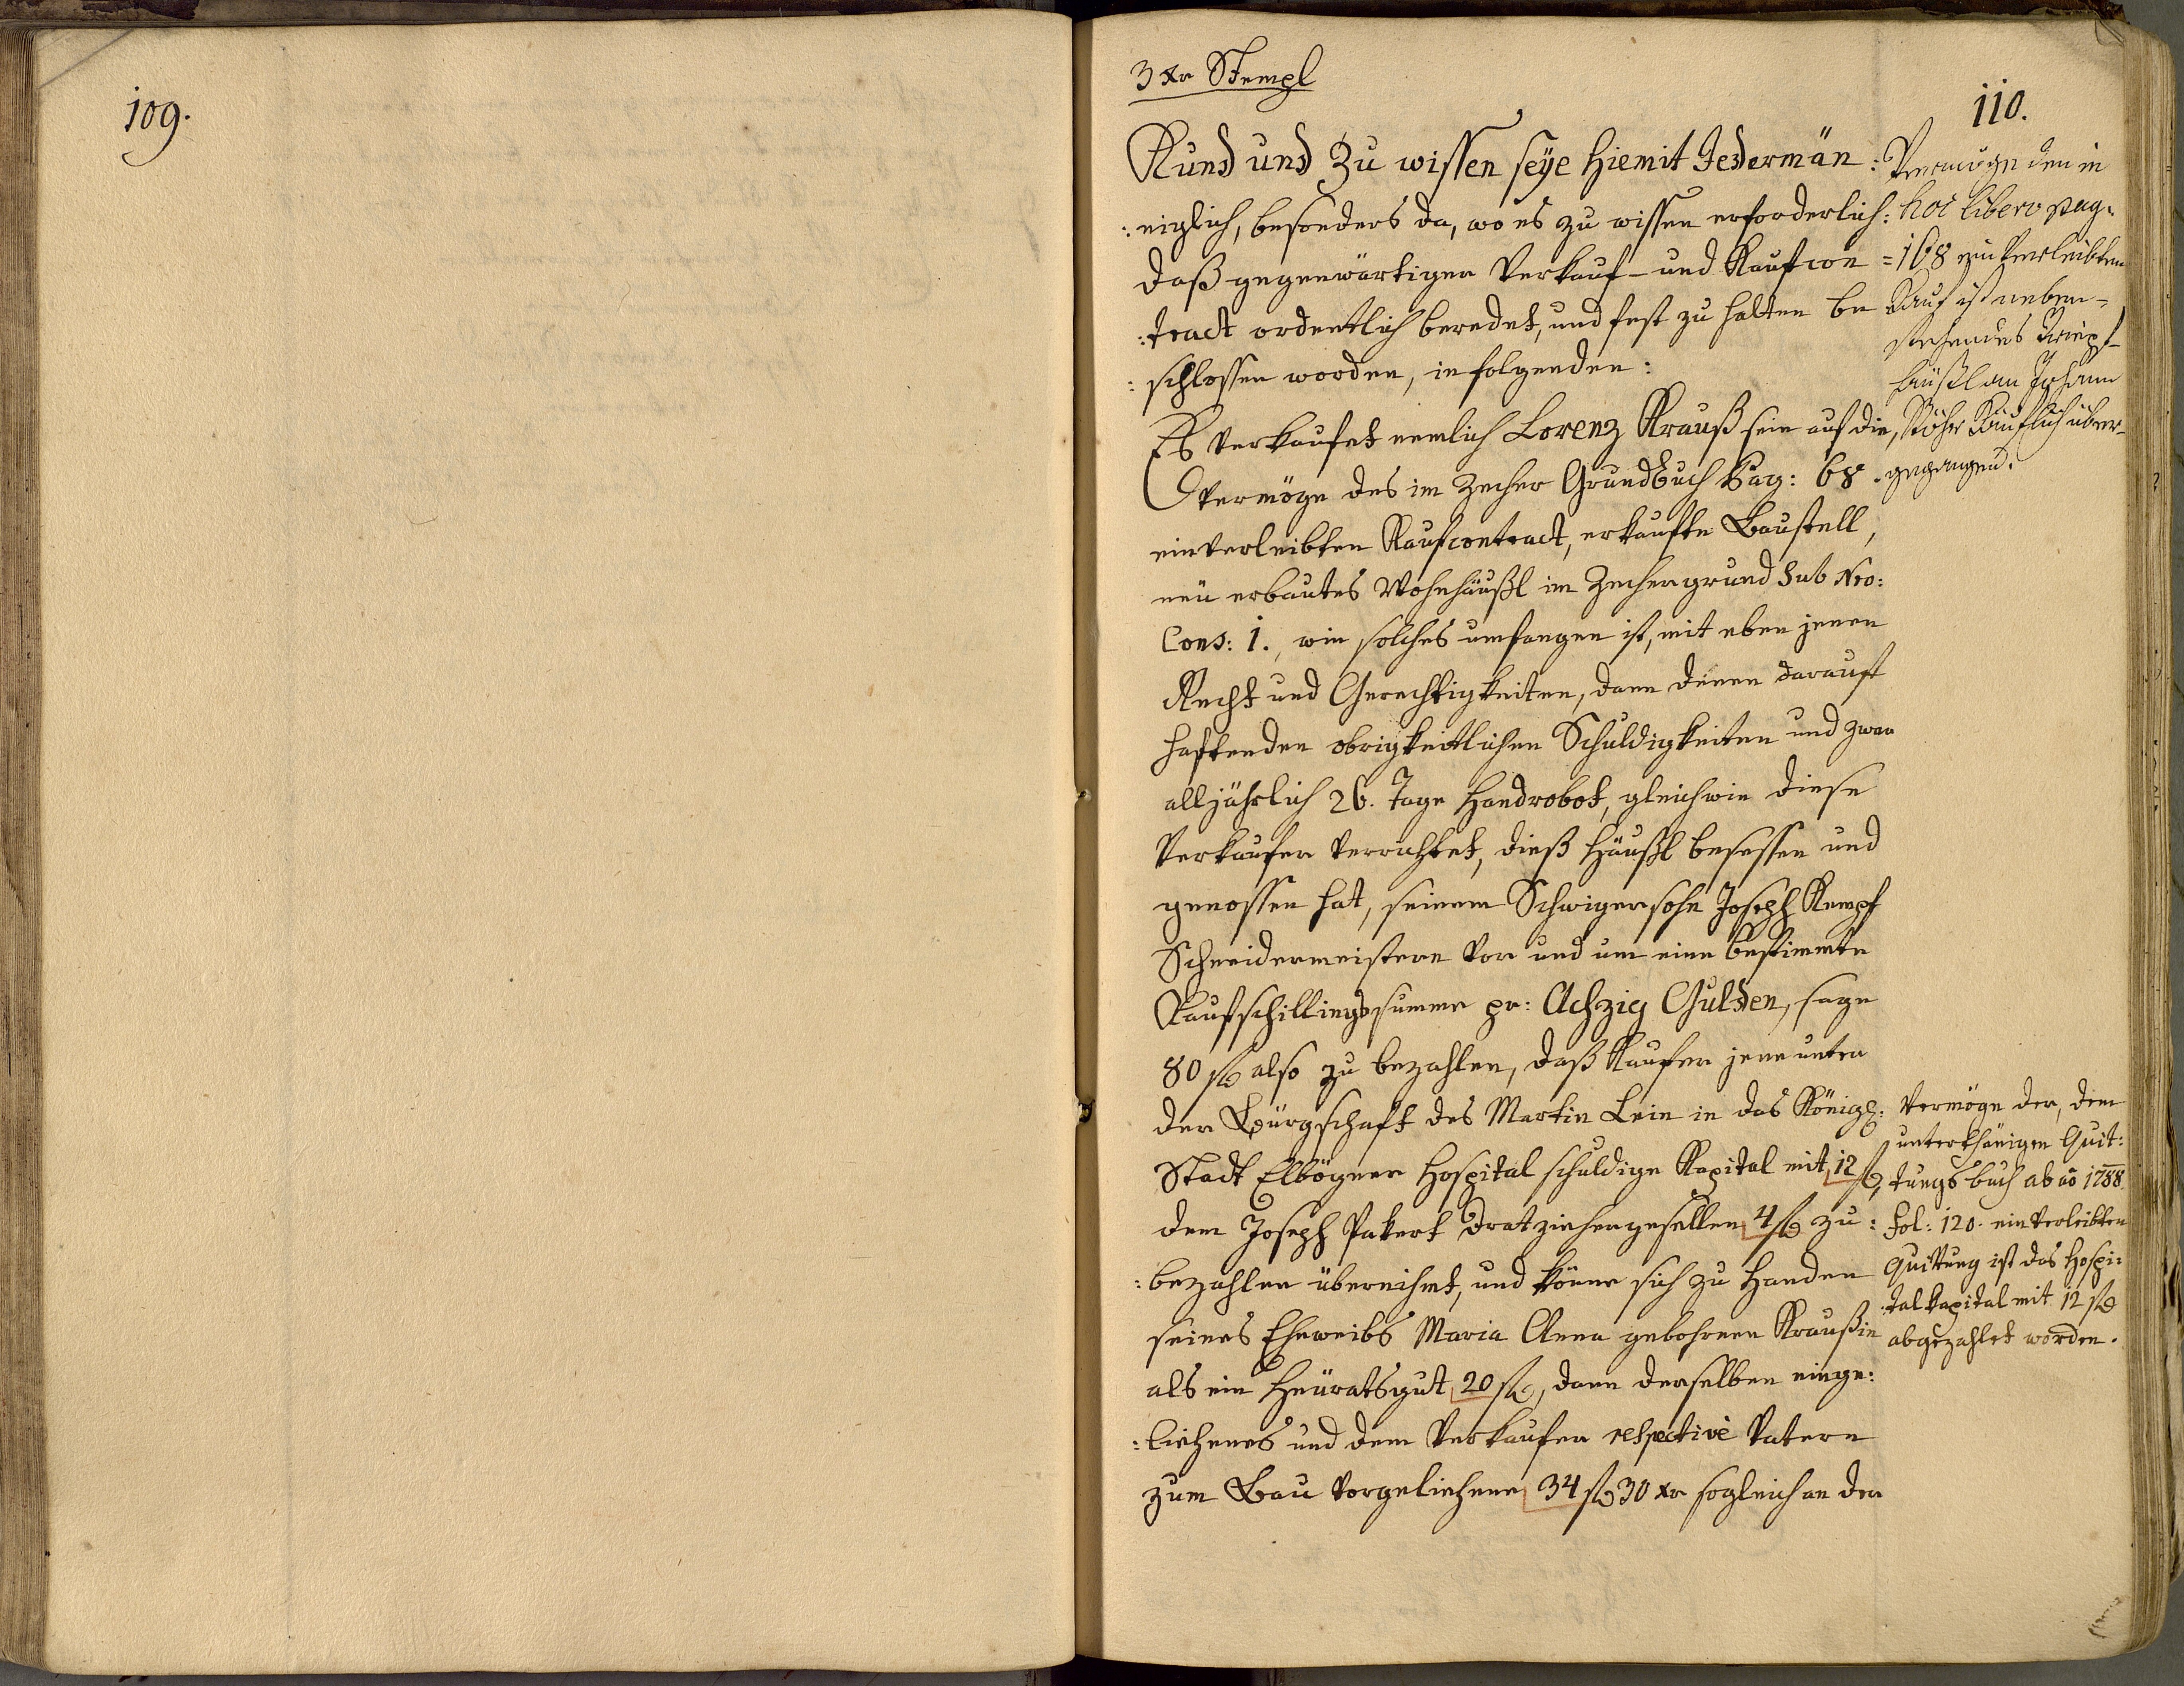 109.
3 xr Stempl
110.
Kund und Zu wissen seÿe hiemit Jedermän:
:niglich, besonders da, wo es zu wissen erforderlich:
daß gegenwärtiger Verkauf- und Kaufcon=
:tract ordentlich beredet, und fest zu halten be
:schlossen worden, in folgenden:
Es verkaufet nemlich Lorenz Krauß sein auf die,
vermöge des im Zecher Grundbuch Pag: 68.
einverleibten Kaufcontract, erkaufte Baustell,
neü erbautes Wohnhäußl im Zechergrund Sub Nro:
Cons: 1., wie solches umfangen ist, mit eben jenen
Recht und Gerechtigkeiten, dann denen darauf
haftenden obrigkeitlichen Schuldigkeiten und zwar
alljährlich 26. Tage Handrobot, gleichwie diese
Verkaufer verrichtet, dieß Häußl besessen und
genossen hat, seinem Schwigersohn Joseph Kempf
Schneidermeistern vor und um eine bestimmte
Kaufschillingssumme pr: Achzig Gulden, sage
80 f also zu bezahlen, daß Kaufer jene unter
der Bürgschaft des Martin Lein in das Königl:
Stadt Elbögner Hospital schuldige Kapital mit 12 f,
dem Joseph Pakert Dratziehergesellen 4 f zu:
:bezahlen übernihmt, und könne sich zu Handen
seines Eheweibs Maria Anna gebohrnen Kraußin
als ein Heüratsgut 20 f, dann derselben einge:
:liehenes und dem Verkaufer respective Vatern
zum Bau vorgeliehene 34 f 30 xr sogleich an der
Vermöge den in
hoc libero pag.
168 einverleibten
Kauf ist neben-
stehendes
häußl an Johann
Stöhr Käuflich über-
gegangen.
Vermöge der, dem
unterthänigen Quit:
tungsbuch ab ao 1788.
fol: 120. einverleibten
Quittung ist das Hospi:
:talkapital mit 12 f
abgezahlet worden.